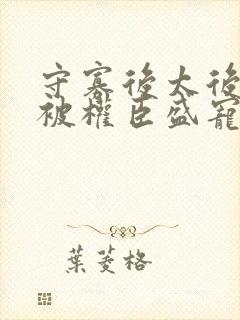 守寡後太後
被權臣盛寵
葉菱格